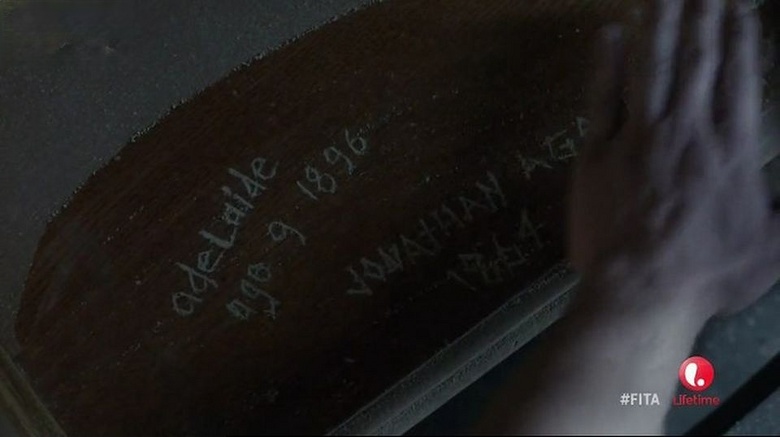 adeLaide
age 9 1896
JONATHAN AGE
1864
#FITA
Lifetime